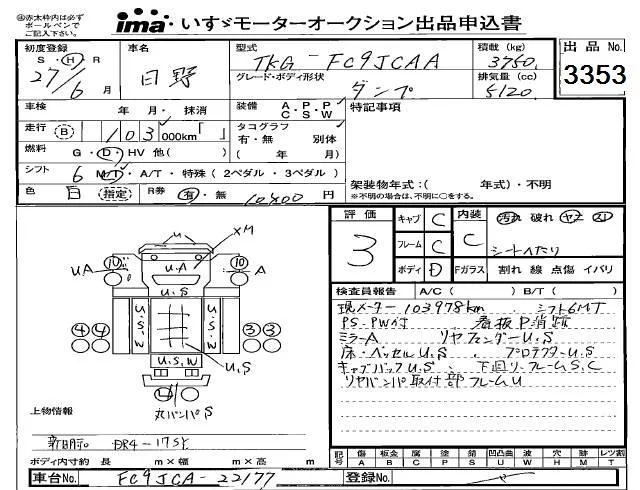 ㊟赤太枠内は必ず
ボールペンで
ご記入下さい。
ima いすゞモーターオークション出品申込書
初度登録 車名 型式 積載 (kg) 出品 No.
S・H・R 27/6 月 日野 TKG-FC9JCAA 3750 3353
グレード・ボディ形状 排気量 (cc)
ダンプ 5120
車検 年 月・ 抹消 装備 A.P.P C.S.W 特記事項
走行 (B) 103 000km「 」 タコグラフ 有・無 別体
燃料 G・D・HV 他( ) ( 年 月)
シフト 6 M/T・A/T・特殊 (2ペダル・3ペダル) 架装物年式:( 年式)・不明
色 白 (指定) R券 有・無 10400 円 ※不明の場合は、不明に○をする。
評価 キャブ C 内装 汚れ 破れ ヤニ スレ
3 フレーム C C シートへたり
ボディ D Fガラス 割れ 線 点傷 イバリ
検査員報告 A/C ( ) B/T ( )
現メーター103978km シフト6MT
PS.PW付 看板P消跡
ミラーA リヤフェンダーU.S
床・ベッセルU.S プロテクターU.S
キャブバックU.S 下廻りフレームS.C
リヤバンパ取付部フレームU
U XM
UA 10 U.A 10 A
U.S
4 4 U.S.W U.S.W 3 3
U.S.W U.S
4
丸バンパS
上物情報
新明和 DR4-17SY
ボディ内寸約 長 m×幅 m×高 m
記号 傷 A 板金 B 腐 C 塗 P 錆 S 凹凸曲 U 波 W 穴 H 跡 M レツ割 T
車台No. FC9JCA-22177 登録No.